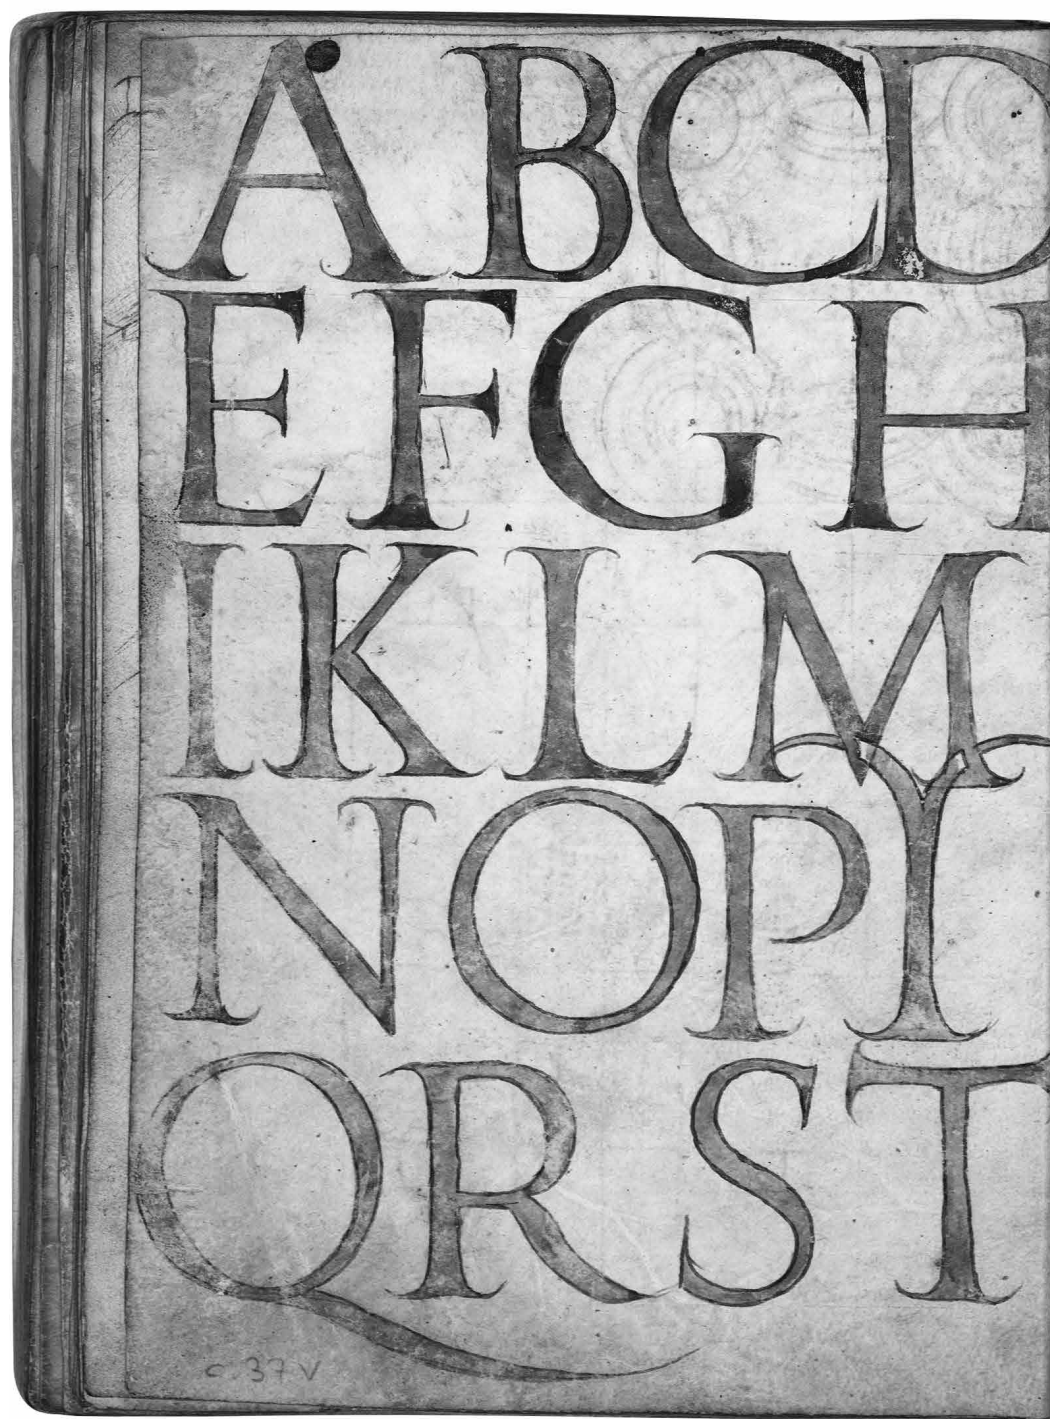 ABCD
EFGH
IKLM
NOPY
QRST
c. 37 v